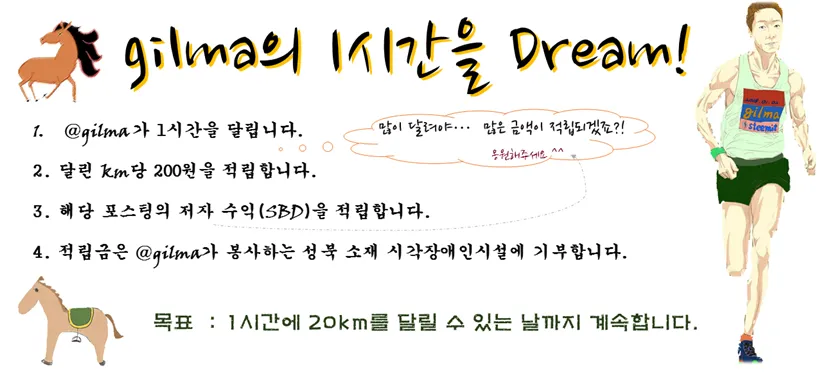 gilma의 1시간을 Dream!
1. @gilma가 1시간을 달립니다.
많이 달려야... 많은 금액이 적립되겠죠?!
응원해주세요 ^^
2. 달린 km당 200원을 적립합니다.
3. 해당 포스팅의 저자 수익(SBD)을 적립합니다.
4. 적립금은 @gilma가 봉사하는 성북 소재 시각장애인시설에 기부합니다.
목표 : 1시간에 20km를 달릴 수 있는 날까지 계속합니다.
gilma
steemit